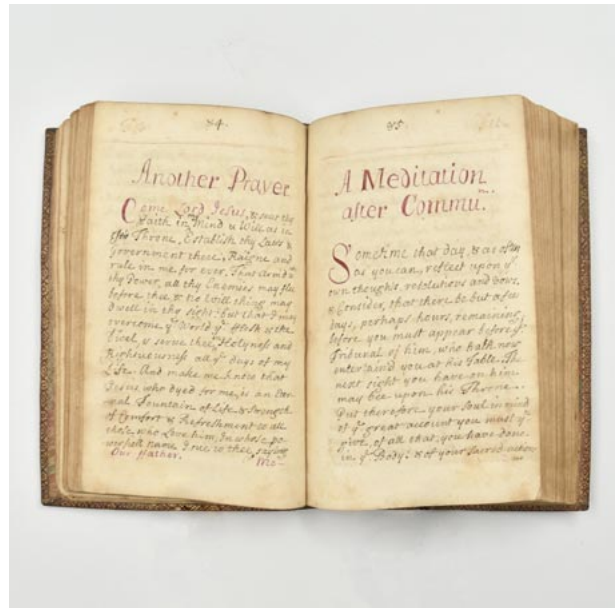 84.
Another Prayer
Come Lord Jesus, & seat thy
Faith in my Mind & Will as in
Throne, Establish thy Laws &
Government there, Raigne and
rule in me for ever, That Armd wth
thy Power, all thy Enemies may flee
before thee & no Evill thing may
dwell in thy sight: but that I may
overcome ye World ye Flesh & the
Divel, & serve thee in Holyness and
Righteousness all ye days of my
Life. And make me know that
Jesus who dyed for me, is an Eter-
nal Fountain of Life & Strength
of Comfort & Refreshment to all
those who Love him, In whose po-
werfull name I sue to thee, saying
Our Father.
Me-
85.
A Meditation
after Commu.
Sometime that day, & as often
as you can, reflect upon ye
own thoughts, resolutions and vows,
& Consider, that there be but a few
days, perhaps hours, remaining,
before you must appear before ye
Tribunal of him, who hath now
entertain'd you at his Table. The
next sight you have on him
may bee upon his Throne.
Put therefore your Soul in mind
of ye great account you must
give, of all that you have done
in ye Body: & of your sacred